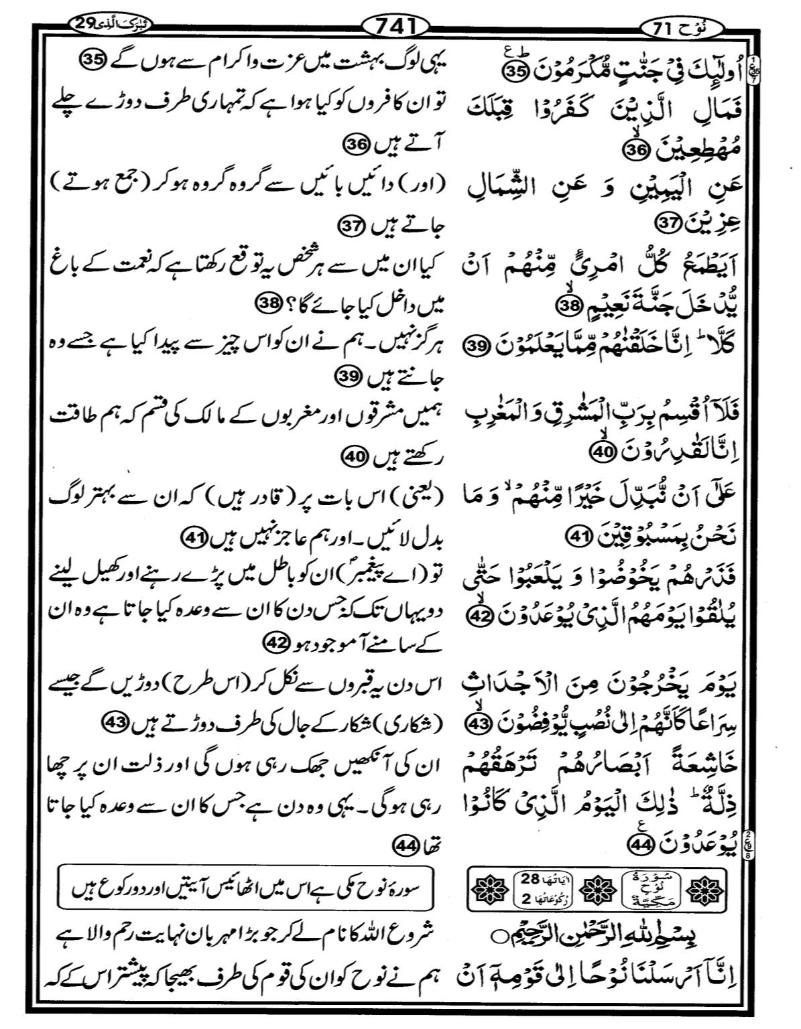 نُوْح 71
741
تَبٰرَکَ الَّذِی 29
اُولٰٓئِكَ فِیْ جَنّٰتٍ مُّكْرَمُوْنَ ؕ ع 35
فَمَالِ الَّذِیْنَ كَفَرُوْا قِبَلَكَ
مُهْطِعِیْنَ ۙ 36
عَنِ الْیَمِیْنِ وَ عَنِ الشِّمَالِ
عِزِیْنَ 37
اَیَطْمَعُ كُلُّ امْرِئٍ مِّنْهُمْ اَنْ
یُّدْخَلَ جَنَّةَ نَعِیْمٍ ۙ 38
كَلَّا ؕ اِنَّا خَلَقْنٰهُمْ مِّمَّا یَعْلَمُوْنَ 39
فَلَاۤ اُقْسِمُ بِرَبِّ الْمَشٰرِقِ وَ الْمَغٰرِبِ
اِنَّا لَقٰدِرُوْنَ ۙ 40
عَلٰۤی اَنْ نُّبَدِّلَ خَیْرًا مِّنْهُمْ ۙ وَ مَا
نَحْنُ بِمَسْبُوْقِیْنَ 41
فَذَرْهُمْ یَخُوْضُوْا وَ یَلْعَبُوْا حَتّٰی
یُلٰقُوْا یَوْمَهُمُ الَّذِیْ یُوْعَدُوْنَ ۙ 42
یَوْمَ یَخْرُجُوْنَ مِنَ الْاَجْدَاثِ
سِرَاعًا كَاَنَّهُمْ اِلٰی نُصُبٍ یُّوْفِضُوْنَ ۙ 43
خَاشِعَةً اَبْصَارُهُمْ تَرْهَقُهُمْ
ذِلَّةٌ ؕ ذٰلِكَ الْیَوْمُ الَّذِیْ كَانُوْا
یُوْعَدُوْنَ ع 44
یہی لوگ بہشت میں عزت و اکرام سے ہوں گے 35
تو ان کافروں کو کیا ہوا ہے کہ تمہاری طرف دوڑے چلے
آتے ہیں 36
(اور) دائیں بائیں سے گروہ گروہ ہو کر (جمع ہوتے)
جاتے ہیں 37
کیا ان میں سے ہر شخص یہ توقع رکھتا ہے کہ نعمت کے باغ
میں داخل کیا جائے گا؟ 38
ہرگز نہیں۔ ہم نے ان کو اس چیز سے پیدا کیا ہے جسے وہ
جانتے ہیں 39
ہمیں مشرقوں اور مغربوں کے مالک کی قسم کہ ہم طاقت
رکھتے ہیں 40
(یعنی) اس بات پر (قادر ہیں) کہ ان سے بہتر لوگ
بدل لائیں۔ اور ہم عاجز نہیں ہیں 41
تو (اے پیغمبرؐ) ان کو باطل میں پڑے رہنے اور کھیل لینے
دو یہاں تک کہ جس دن کا ان سے وعدہ کیا جاتا ہے وہ ان
کے سامنے آ موجود ہو 42
اس دن یہ قبروں سے نکل کر (اس طرح) دوڑیں گے جیسے
(شکاری) شکار کے جال کی طرف دوڑتے ہیں 43
ان کی آنکھیں جھک رہی ہوں گی اور ذلت ان پر چھا
رہی ہو گی۔ یہی وہ دن ہے جس کا ان سے وعدہ کیا جاتا
تھا 44
سُوْرَةُ نُوْحٍ مَکِّیَّةٌ
اٰیَاتُهَا 28
رُکُوْعَاتُهَا 2
سورۂ نوح مکی ہے اس میں اٹھائیس آیتیں اور دو رکوع ہیں
بِسْمِ اللّٰهِ الرَّحْمٰنِ الرَّحِیْمِ ○
شروع اللہ کا نام لے کر جو بڑا مہربان نہایت رحم والا ہے
اِنَّاۤ اَرْسَلْنَا نُوْحًا اِلٰی قَوْمِهٖۤ اَنْ
ہم نے نوح کو ان کی قوم کی طرف بھیجا کہ پیشتر اس کے کہ